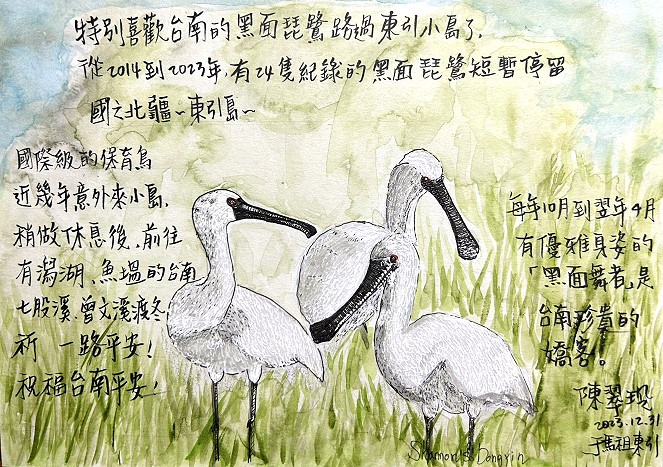 特別喜歡台南的黑面琵鷺路過東引小島了,
從2014到2023年,有24隻紀錄的黑面琵鷺短暫停留
國之北疆~東引島~
國際級的保育鳥
近幾年意外來小島,
稍做休息後,前往
有潟湖、魚塭的台南
七股溪、曾文溪渡冬,
祈 一路平安!
祝福台南平安!
每年10月到翌年4月
有優雅身姿的
「黑面舞者」是
台南珍貴的
嬌客。
陳翠琅
2023.12.31
于馬祖東引
Dongyin